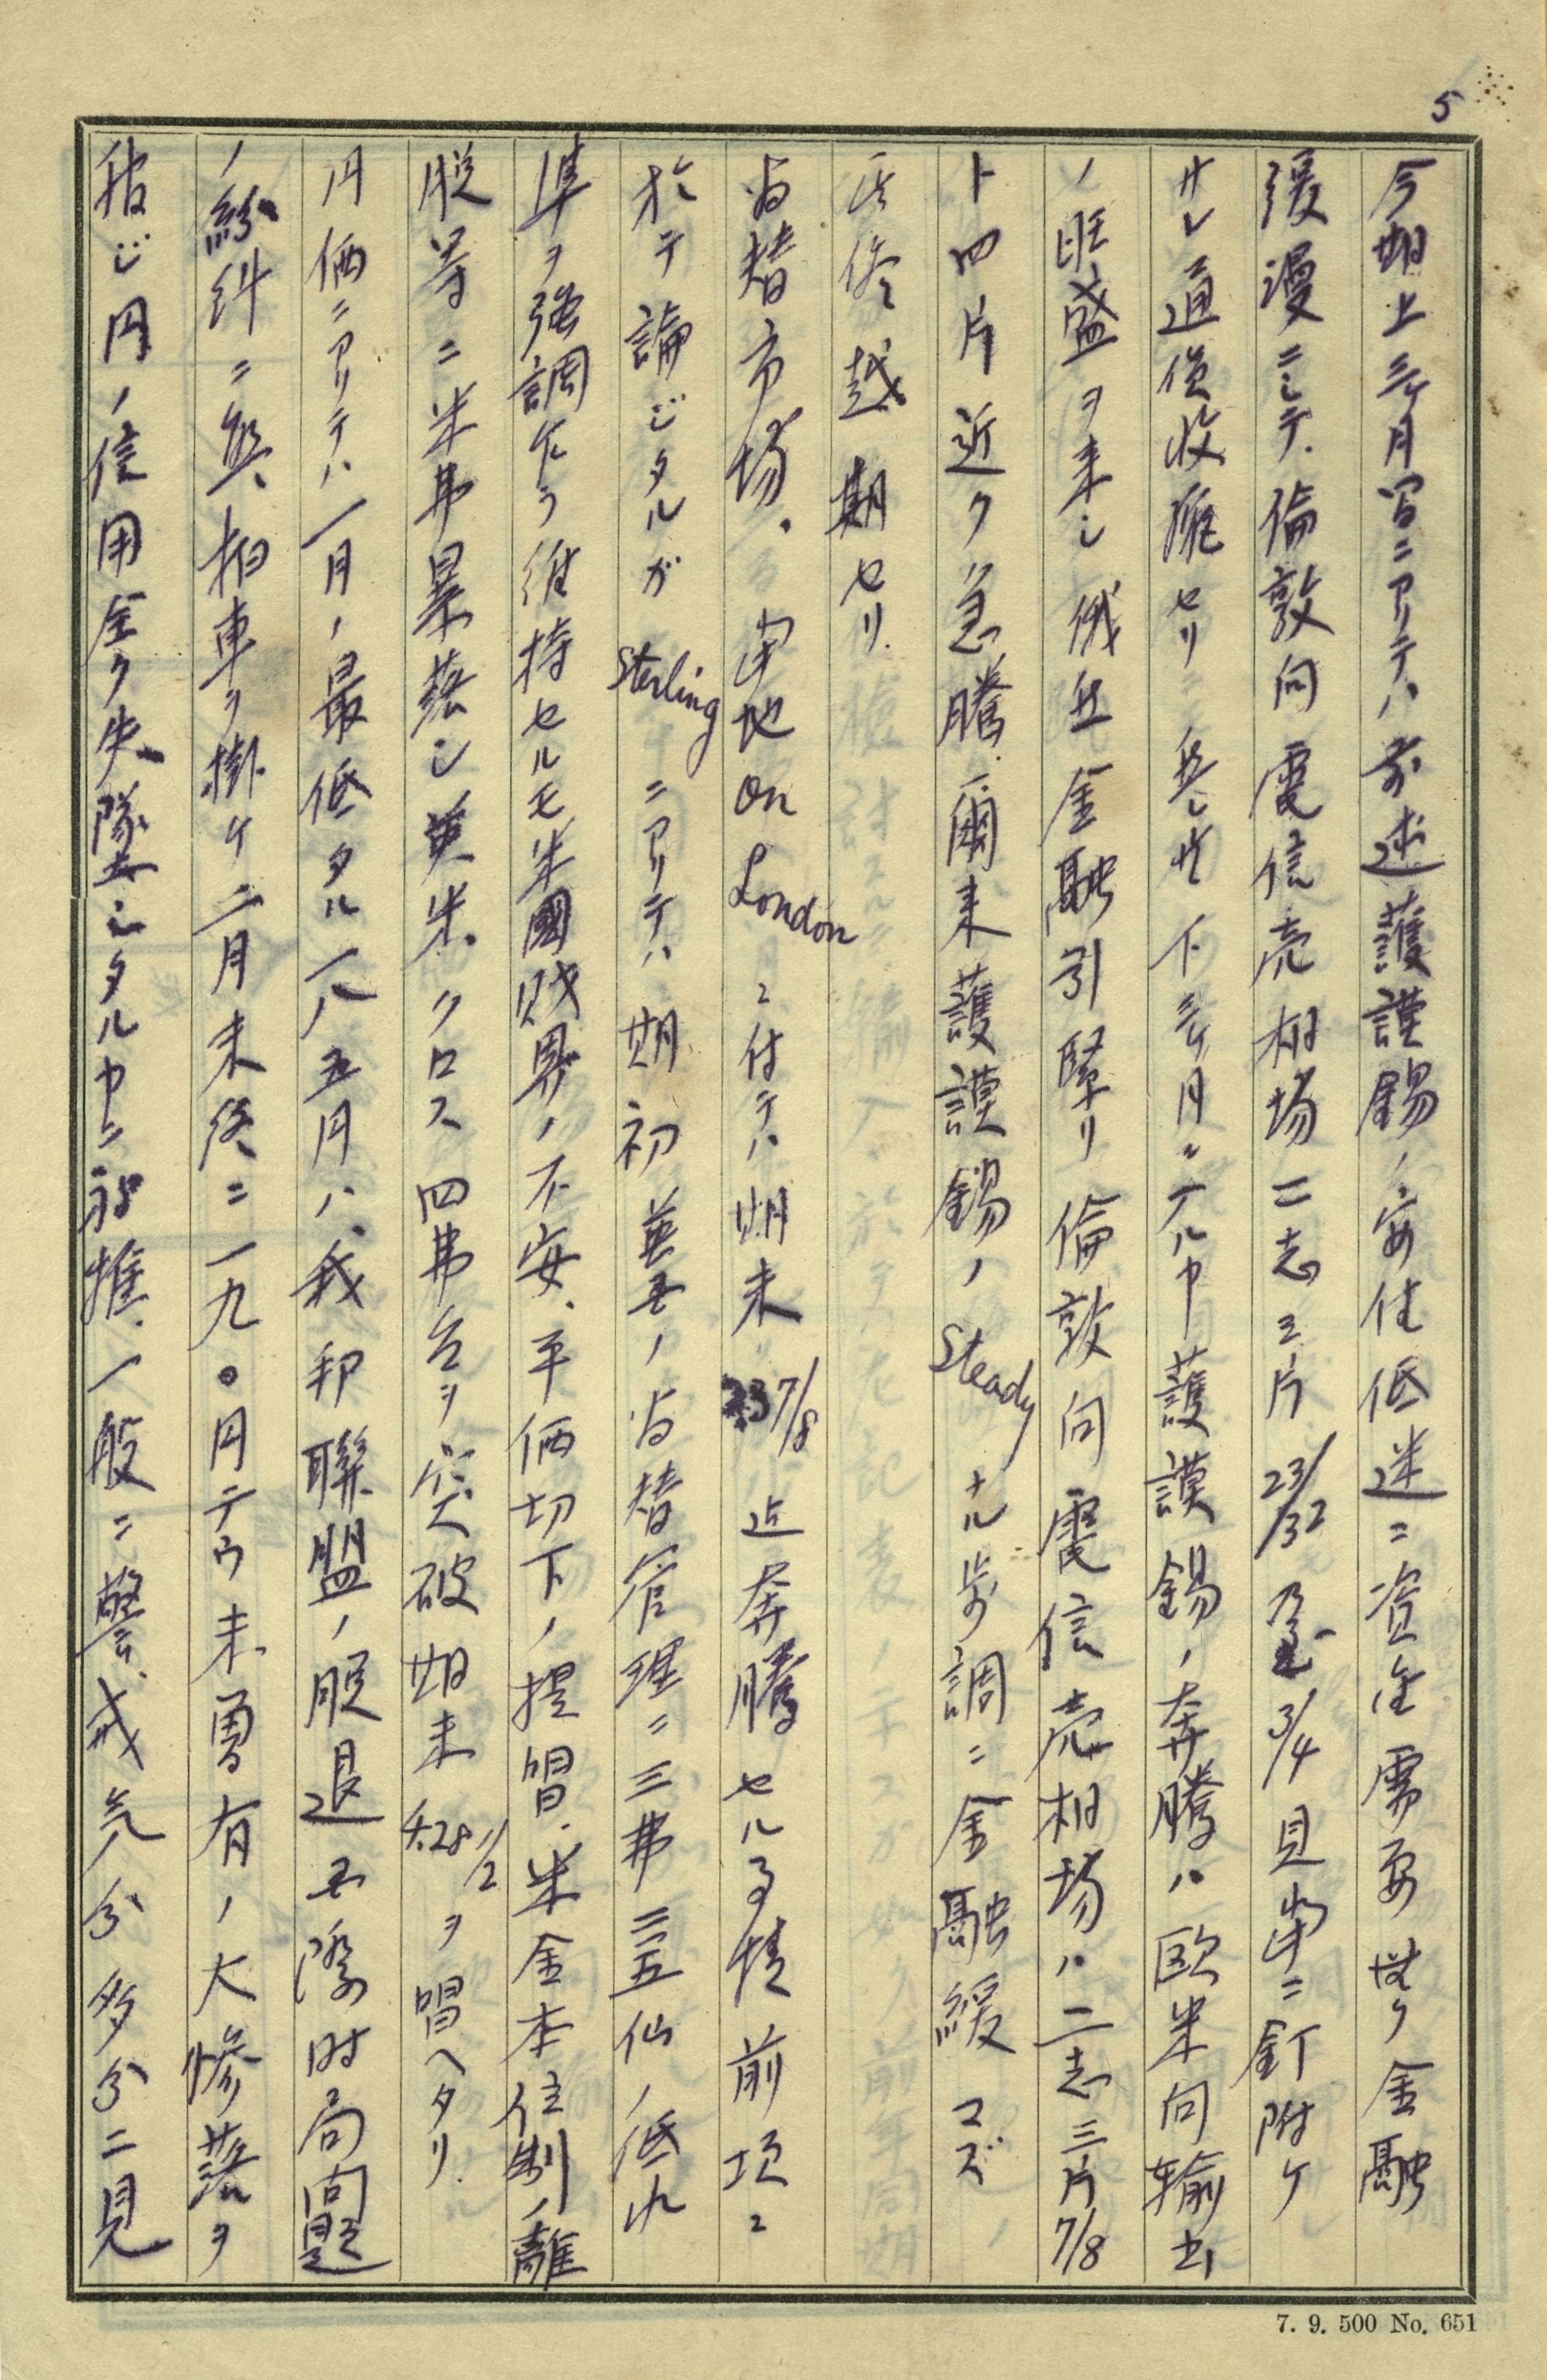 5
今期上三ヶ月間ニアリテハ前述護謨錫ノ安値低迷ニ資金需要尠ク金融
緩漫ニシテ倫敦向電信売相場二志三片23/32乃至3/4見当ニ釘附ケ
サレ通貨収縮セリ 然レ共下三ヶ月ニ入ルヤ護謨錫ノ奔騰ハ欧米向輸出
ノ旺盛ヲ来シ俄然金融引緊リ倫敦向電信売相場ハ二志三片7/8
ト四片近ク急騰爾来護謨錫ノSteadyナル歩調ニ金融緩マズ
其儘越期セリ
為替市場 当地 On London ニ付テハ期末 3 7/8 近奔騰セル事情前項ニ
於テ論ジタルガ Sterling ニアリテハ期初英国ノ為替管理ニ三弗三五仙ノ低水
準ヲ強調乍ラ維持セルモ米国財界ノ不安、平価切下ノ提唱、米金本位制ノ離
脱等ニ米弗暴落シ英米クロス四弗台ヲ突破期末 4.28 1/2 ヲ唱ヘタリ
円価ニアリテハ一月ノ最低タル一八五円ハ、我邦聯盟ノ脱退国際時局問題
ノ紛糾ニ無拍車ヲ掛ケ二月末終ニ一九〇円テウ未曽有ノ大惨落ヲ
報ジ円ノ信用全ク失墜シタルヤニ邪推一般ニ警戒気分多分ニ見
7. 9. 500 No. 651